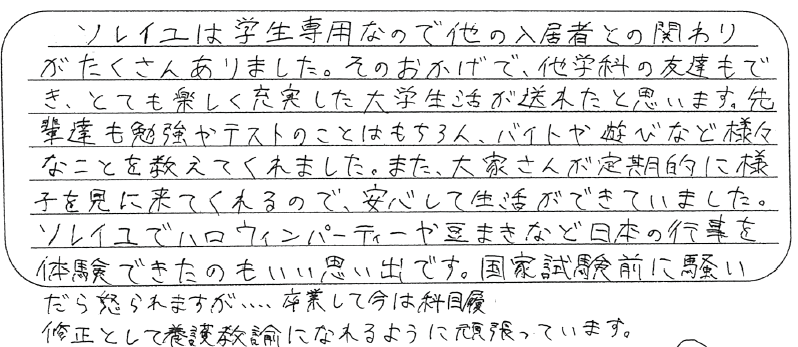 ソレイユは学生専用なので他の入居者との関わり
がたくさんありました。そのおかげで、他学科の友達もで
き、とても楽しく充実した大学生活が送れたと思います。先
輩達も勉強やテストのことはもちろん、バイトや遊びなど様々
なことを教えてくれました。また、大家さんが定期的に様
子を見に来てくれるので、安心して生活ができていました。
ソレイユでハロウィンパーティーや豆まきなど日本の行事を
体験できたのもいい思い出です。国家試験前に騒い
だら怒られますが‥‥卒業して今は科目履
修正として養護教諭になれるように頑張っています。